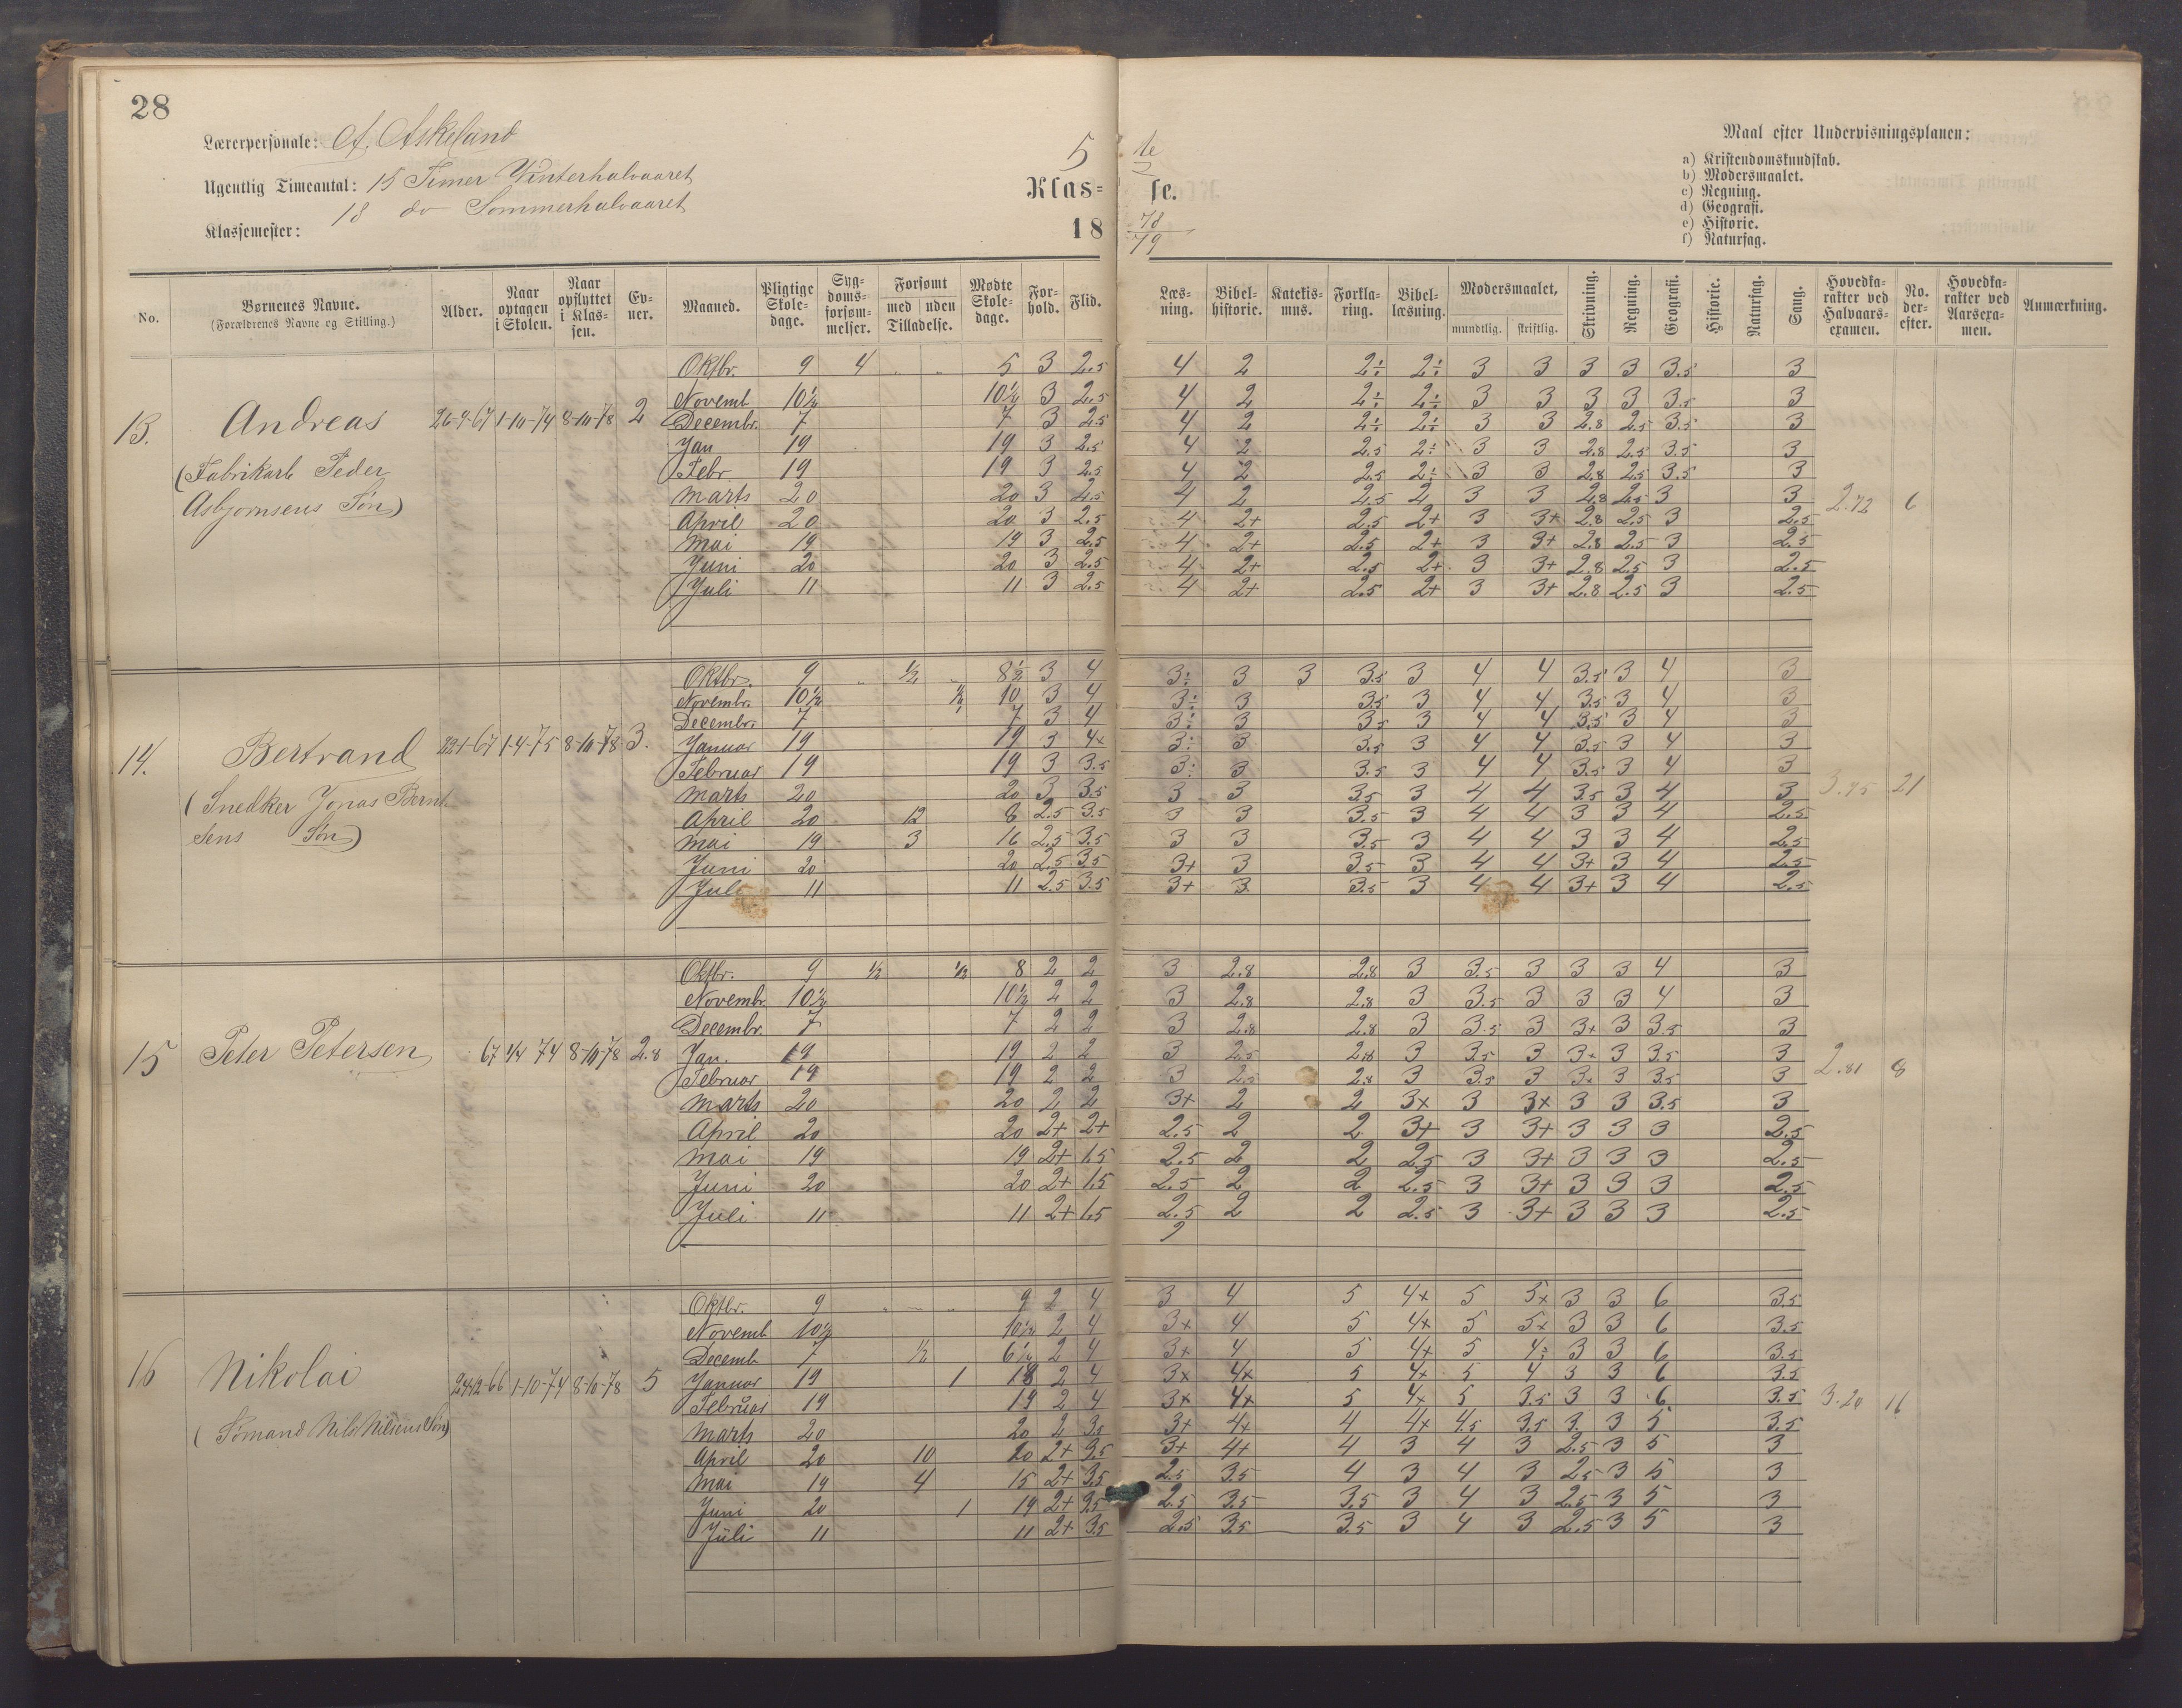 28
Lærerpersonale: A. Askeland
Ugentlig Timeantal: 15 Timer Vinterhalvaaret
18 do Sommerhalvaaret
Klassemester:
5te
Klasse.
18 78/79
Maal efter Undervisningsplanen:
a) Kristendomskundskab.
b) Modersmaalet.
c) Regning.
d) Geografi.
e) Historie.
f) Naturfag.
No. | Børnenes Navne. (Forældrenes Navne og Stilling.) | Alder. | Naar optagen i Skolen. | Naar opflyttet i Klassen. | Evner. | Maaned. | Pligtige Skoledage. | Sygdomsforsømmelser. | Forsømt med uden Tilladelse. | Mødte Skoledage. | Forhold. | Flid. | Læsning. | Bibelhistorie. | Katekismus. | Forklaring. | Bibellæsning. | Modersmaalet, mundtlig. skriftlig. | Skrivning. | Regning. | Geografi. | Historie. | Naturfag. | Sang. | Hovedkarakter ved Halvaarsexamen. | No. derefter. | Hovedkarakter ved Aarsexamen. | Anmærkning.
13. Andreas 26-9-67 1-10-74 8-10-78 2
(Fabrikarb Peder
Asbjørnsens Søn)
Oktbr. 9 4 " " 5 3 2.5 4 2 2÷ 2÷ 3 3 3 3 3.5 3
Novemb 10½ 10½ 3 2.5 4 2 2÷ 2÷ 3 3 3 3 3.5 3
Decembr. 7 7 3 2.5 4 2 2÷ 2÷ 3 3 2.8 2.5 3.5 3
Jan 19 19 3 2.5 4 2 2.5 2÷ 3 3 2.8 2.5 3.5 3
Febr 19 19 3 2.5 4 2 2.5 2÷ 3 3 2.8 2.5 3.5 3
Marts 20 20 3 2.5 4 2 2.5 2 3 3 2.8 2.5 3 3 2.72 6
April 20 20 3 2.5 4 2+ 2.5 2+ 3 3+ 2.8 2.5 3 2.5
Mai 19 19 3 2.5 4 2+ 2.5 2+ 3 3+ 2.8 2.5 3 2.5
Juni 20 20 3 2.5 4 2+ 2.5 2+ 3 3+ 2.8 2.5 3 2.5
Juli 11 11 3 2.5 4 2+ 2.5 2+ 3 3+ 2.8 2.5 3 2.5
14. Bertrand 22-1-67 1-4-75 8-10-78 3.
(Snedker Jonas Bernt
sens Søn)
Oktbr. 9 " ½ " 8½ 3 4 3÷ 3 3 3.5 3 4 4 3.5 3 4 3
Novembr. 10½ ½ 10 3 4 3÷ 3 3.5 3 4 4 3.5 3 4 3
Decembr. 7 7 3 4 3÷ 3 3.5 3 4 4 3.5 3 4 3
Januar 19 19 3 4+ 3÷ 3 3.5 3 4 4 3.5 3 4 3
Februar 19 19 3 3.5 3÷ 3 3.5 3 4 4 3.5 3 4 3
Marts 20 20 3 3.5 3 3 3.5 3 4 4 3.5 3 4 3 21
April 20 12 8 2.5 3.5 3 3 3.5 3 4 4 3 3 4 2.5
Mai 19 3 16 2.5 3.5 3 3 3.5 3 4 4 3 3 4 2.5
Juni 20 20 2.5 3.5 3+ 3 3.5 3 4 4 3+ 3 4 2.5
Juli 11 11 2.5 3.5 3+ 3 3.5 3 4 4 3+ 3 4 2.5
15 Peter Petersen 67 1/4 74 8-10-78 2.8
Oktbr. 9 ½ ½ 8 2 2 3 2.8 2.8 3 3.5 3 3 3 4 3
Novembr. 10½ 10½ 2 2 3 2.8 2.8 3 3.5 3 3 3 4 3
Decembr. 7 7 2 2 3 2.8 2.8 3 3.5 3 3+ 3 3.5 3
Jan. 19 19 2 2 3 2.5 2.8 3 3.5 3 3+ 3 3.5 3
Februar 19 19 2 2 3 2.5 2.8 3 3.5 3 3+ 3 3.5 3 2.81 8
Marts 20 20 2 2 3+ 2 2 3+ 3 3+ 3 3 3.5 3
April 20 20 2+ 2+ 2.5 2 2 3+ 3 3+ 3 3 3 2.5
Mai 19 19 2+ 1.5 2.5 2 2 2.5 3 3+ 3 3 3 2.5
Juni 20 20 2+ 1.5 2.5 2 2 2.5 3 3+ 3 3 3 2.5
Juli 11 11 2+ 1.5 2.5 2 2 2.5 3 3+ 3 3 3 2.5
16 Nikolai 24-12-66 1-10-74 8-10-78 5
(Sømand Nils Nilsens Søn)
Oktbr. 9 " " " 9 2 4 3 4 5 4+ 5 5+ 3 3 6 3.5
Novemb 10½ 10½ 2 4 3+ 4 5 4+ 5 5+ 3 3 6 3.5
Decemb 7 ½ 6½ 2 4 3+ 4 5 4+ 5 4÷ 3 3 6 3.5
Januar 19 1 18 2 4 3+ 4+ 5 4+ 5 4 3 3 6 3.5
Februar 19 19 2 4 3+ 4+ 5 4+ 5 3.5 3 3 6 3.5 3.20 16
Marts 20 20 2 3.5 3+ 4+ 4 4+ 4.5 3.5 3 3 5 3.5
April 20 10 20 2+ 3.5 3+ 4+ 4 3 4 3 2.5 3 5 3
Mai 19 4 15 2+ 3.5 2.5 3.5 4 3 4 3 2.5 3 5 3
Juni 20 1 19 2+ 3.5 2.5 3.5 3.5 3 4 3 2.5 3 5 3
Juli 11 11 2+ 3.5 2.5 3.5 3.5 3 4 3 2.5 3 5 3